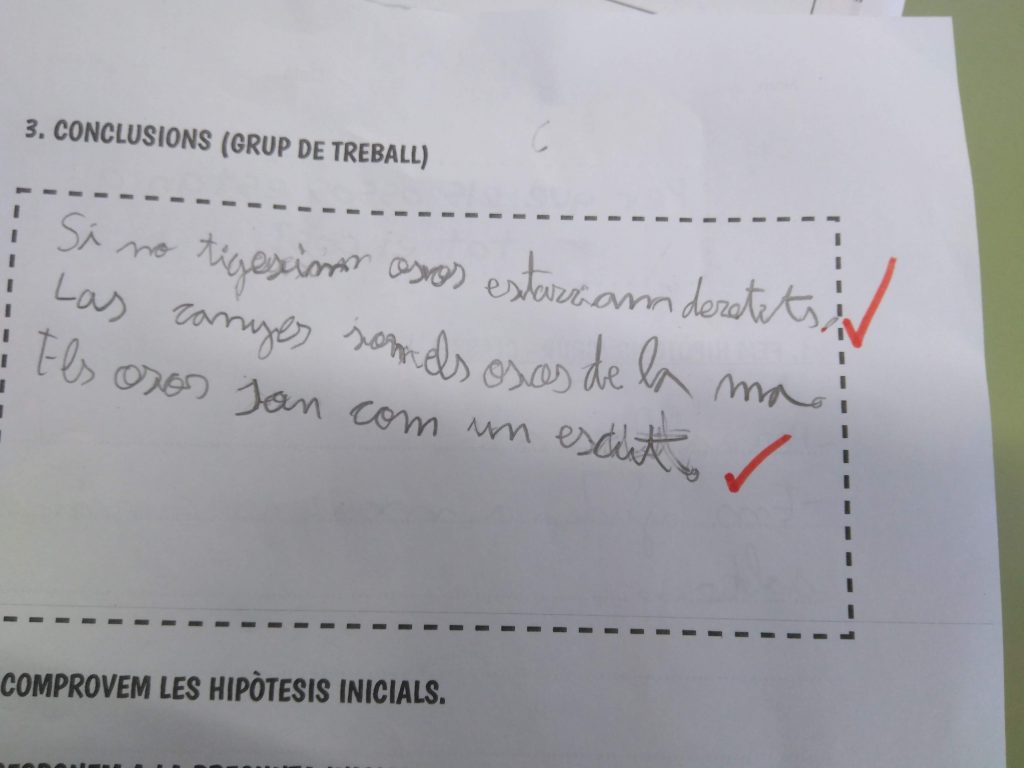 3. CONCLUSIONS (GRUP DE TREBALL)
Si no tigesim osos estarriam deratits.
Las canyes som els osos de la ma.
Els osos son com un escut.
COMPROVEM LES HIPÒTESIS INICIALS.